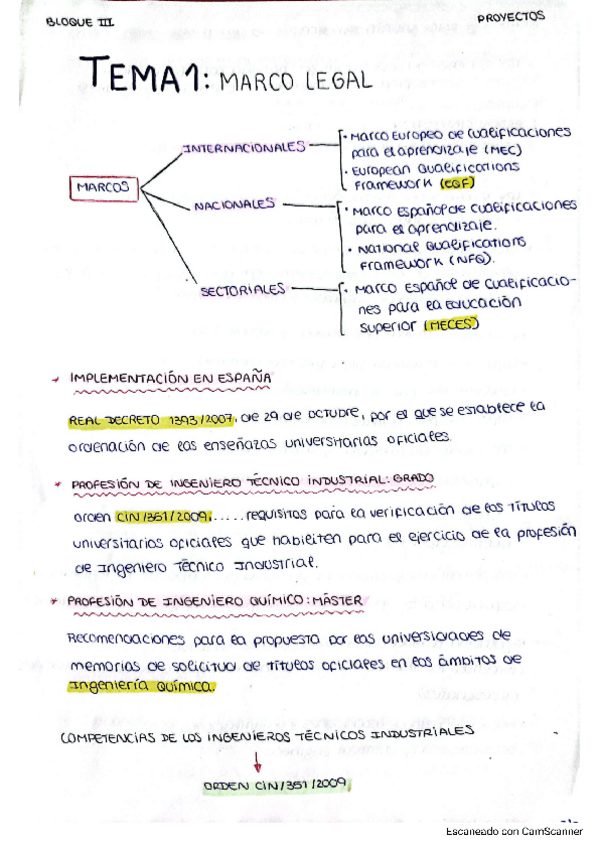 BLOQUE III
PROYECTOS
TEMA 1: MARCO LEGAL
MARCOS
INTERNACIONALES
· Marco Europeo de Cualificaciones
para el aprendizaje (MEC)
· European Qualifications
Framework (EQF)
NACIONALES
· Marco Español de Cualificaciones
para el aprendizaje.
· National Qualifications
Framework (NFQ).
SECTORIALES
· Marco Español de Cualificacio-
nes para la Educación
Superior (MECES)
→ IMPLEMENTACIÓN EN ESPAÑA
REAL DECRETO 1393/2007, de 29 de octubre, por el que se establece la
ordenación de las enseñazas universitarias oficiales.
* PROFESIÓN DE INGENIERO TÉCNICO INDUSTRIAL: GRADO
Orden CIN/351/2009, ..... requisitos para la verificación de los títulos
universitarios oficiales que habiliten para el ejercicio de la profesión
de Ingeniero Técnico Industrial.
* PROFESIÓN DE INGENIERO QUÍMICO: MÁSTER
Recomendaciones para la propuesta por las universidades de
memorias de solicitud de títulos oficiales en los ámbitos de
Ingeniería Química.
COMPETENCIAS DE LOS INGENIEROS TÉCNICOS INDUSTRIALES
↓
ORDEN CIN/351/2009
Escaneado con CamScanner